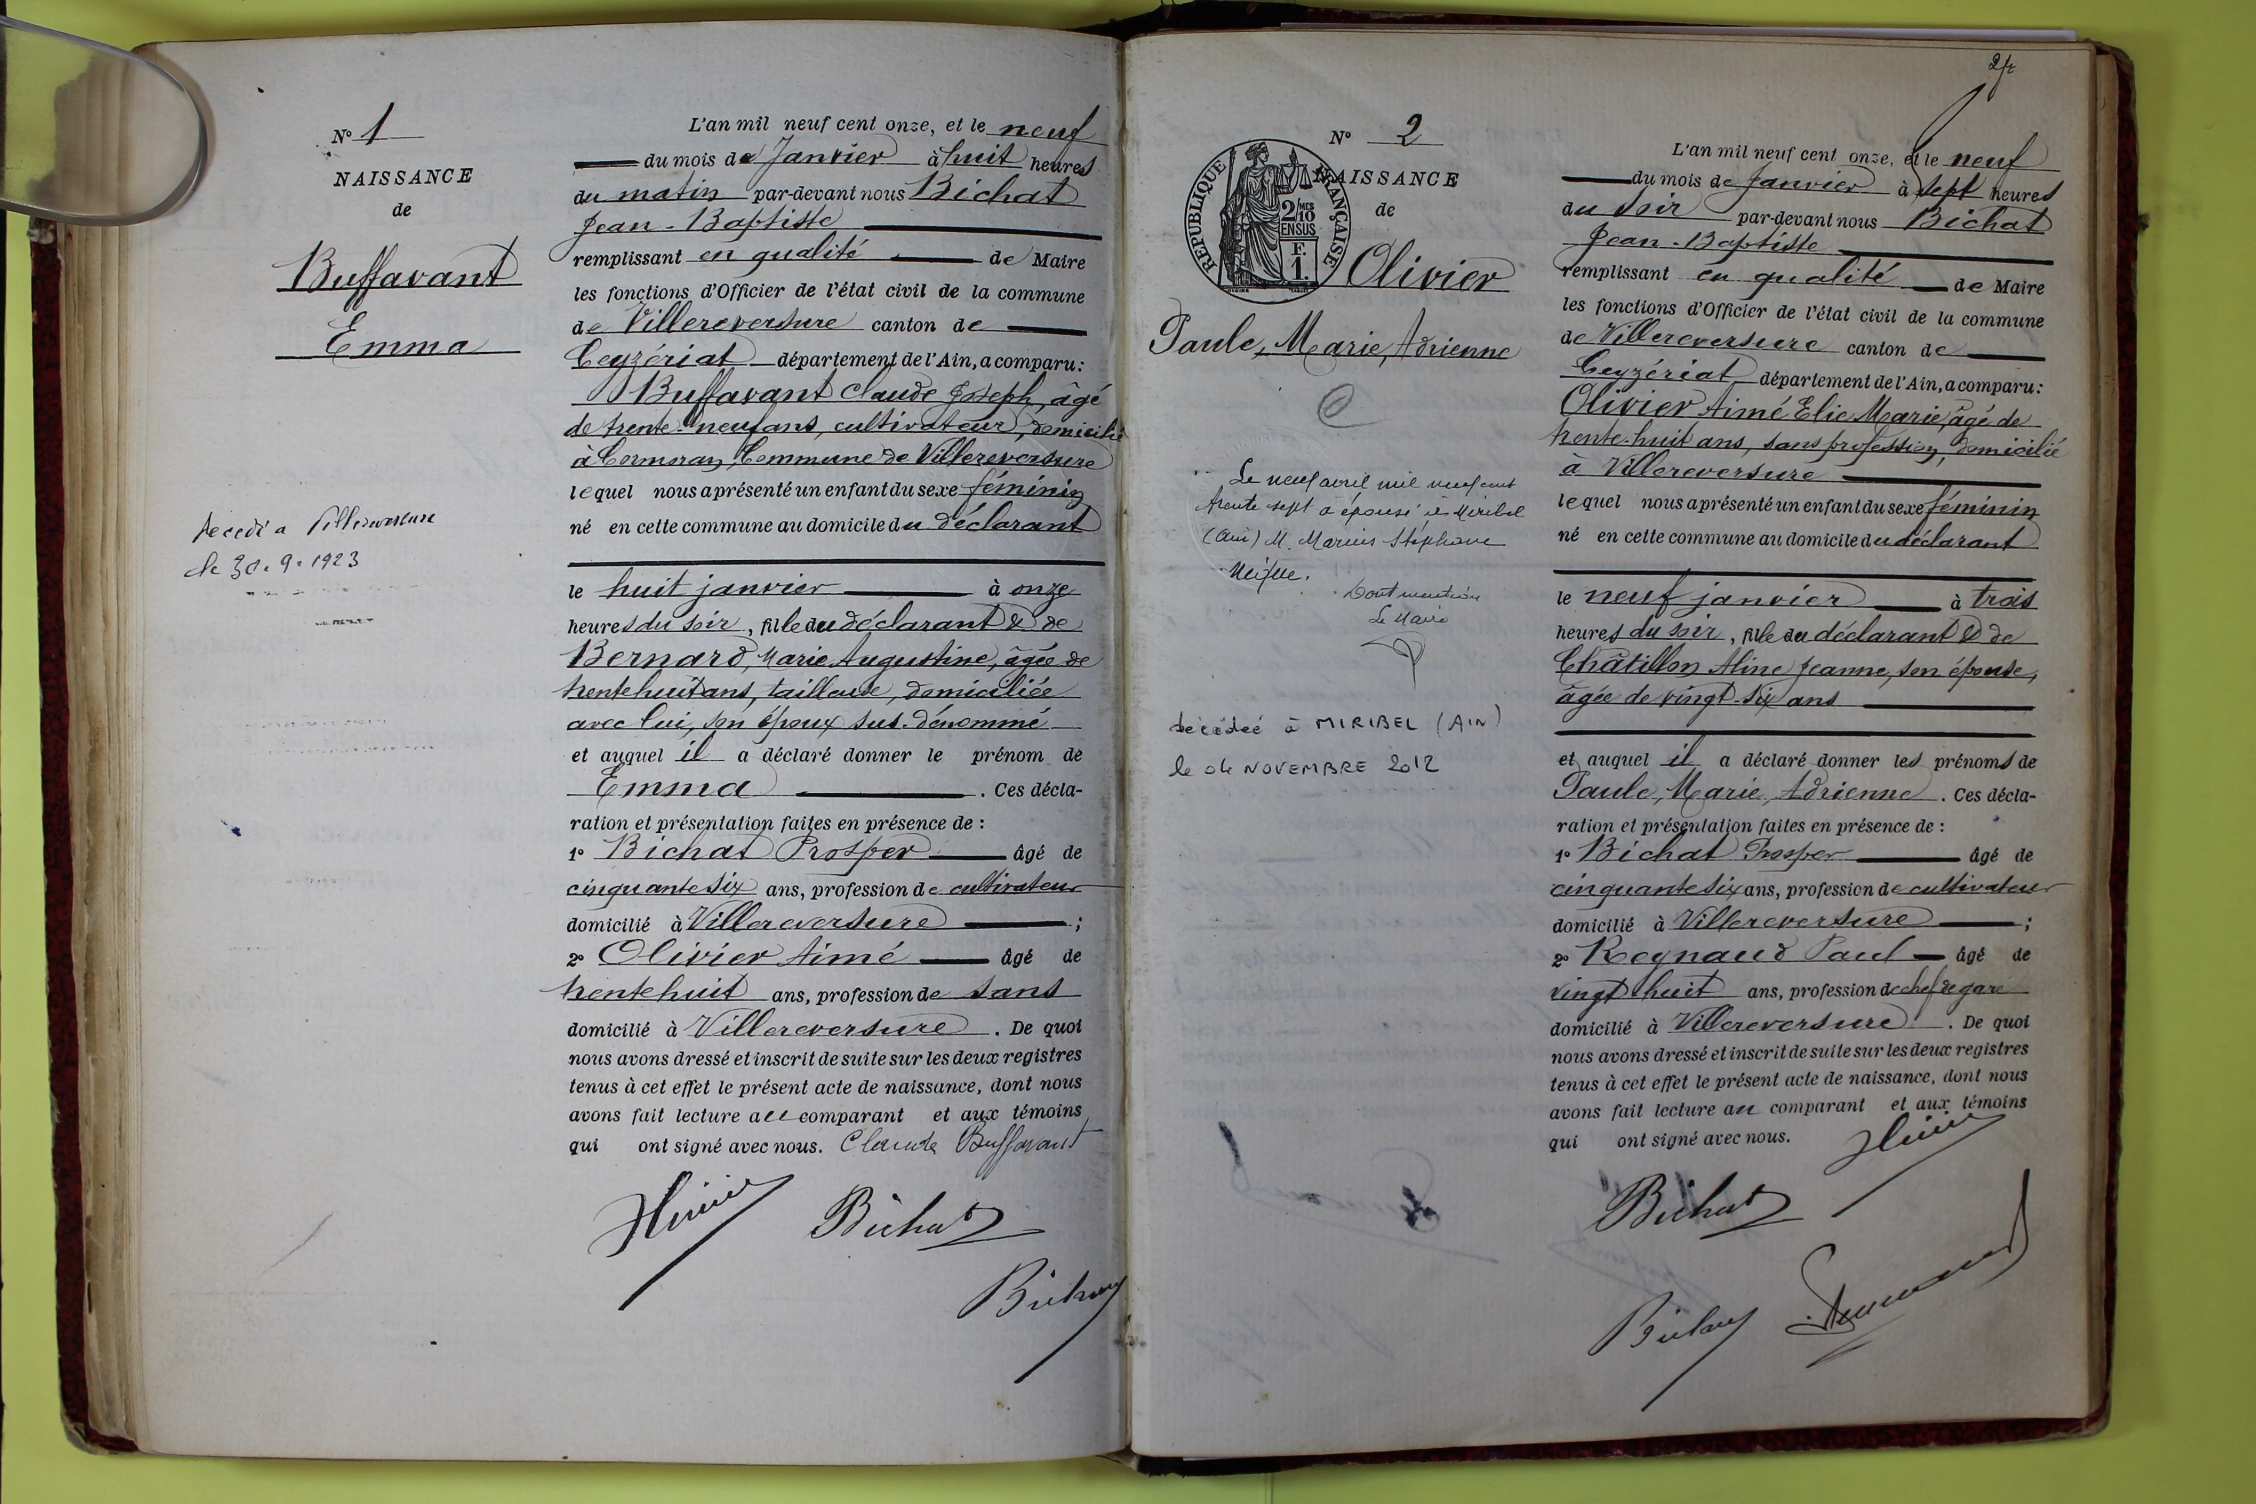 N° 1
NAISSANCE
de
Buffavant
Emma
Décédé a Villereversure
le 30.9.1923
L'an mil neuf cent onze, et le neuf
du mois de Janvier à huit heures
du matin par-devant nous Bichat
Jean-Baptiste
remplissant en qualité de Maire
les fonctions d'Officier de l'état civil de la commune
de Villereversure canton de
Ceyzériat département de l'Ain, a comparu:
Buffavant Claude Joseph, âgé
de trente-neuf ans, cultivateur, domicilié
à Cormoran, Commune de Villereversure
lequel nous a présenté un enfant du sexe féminin
né en cette commune au domicile du déclarant
le huit janvier à onze
heures du soir, fille du déclarant & de
Bernard, Marie Augustine, âgée de
trente huit ans, tailleuse, domiciliée
avec lui, son époux sus-dénommé
et auquel il a déclaré donner le prénom de
Emma . Ces décla-
ration et présentation faites en présence de :
1° Bichat Prosper âgé de
cinquante six ans, profession de cultivateur
domicilié à Villereversure ;
2° Olivier Aimé âgé de
trente huit ans, profession de sans
domicilié à Villereversure . De quoi
nous avons dressé et inscrit de suite sur les deux registres
tenus à cet effet le présent acte de naissance, dont nous
avons fait lecture au comparant et aux témoins
qui ont signé avec nous. Claude Buffavant
Olivier Bichat
Bichat
2 f
N° 2
NAISSANCE
de
REPUBLIQUE FRANÇAISE
2/10 MES
EN SUS
F.
1.
Olivier
Paule, Marie, Adrienne
Le neuf avril mil neuf cent
trente sept a épousé à Miribel
(Ain) M. Marius Stéphane
Dont mention
Le Maire
décédée à MIRIBEL (AIN)
le 04 NOVEMBRE 2012
L'an mil neuf cent onze, et le neuf
du mois de Janvier à sept heures
du soir par-devant nous Bichat
Jean-Baptiste
remplissant en qualité de Maire
les fonctions d'Officier de l'état civil de la commune
de Villereversure canton de
Ceyzériat département de l'Ain, a comparu:
Olivier Aimé Elie Marie, âgé de
trente-huit ans, sans profession, domicilié
à Villereversure
lequel nous a présenté un enfant du sexe féminin
né en cette commune au domicile du déclarant
le neuf janvier à trois
heures du soir, fille du déclarant & de
Châtillon Aline Jeanne, son épouse,
âgée de vingt-six ans
et auquel il a déclaré donner les prénoms de
Paule, Marie, Adrienne . Ces décla-
ration et présentation faites en présence de :
1° Bichat Prosper âgé de
cinquante six ans, profession de cultivateur
domicilié à Villereversure ;
2° Reynaud Paul âgé de
vingt huit ans, profession de chef de gare
domicilié à Villereversure . De quoi
nous avons dressé et inscrit de suite sur les deux registres
tenus à cet effet le présent acte de naissance, dont nous
avons fait lecture au comparant et aux témoins
qui ont signé avec nous. Olivier
Bichat
Bichat